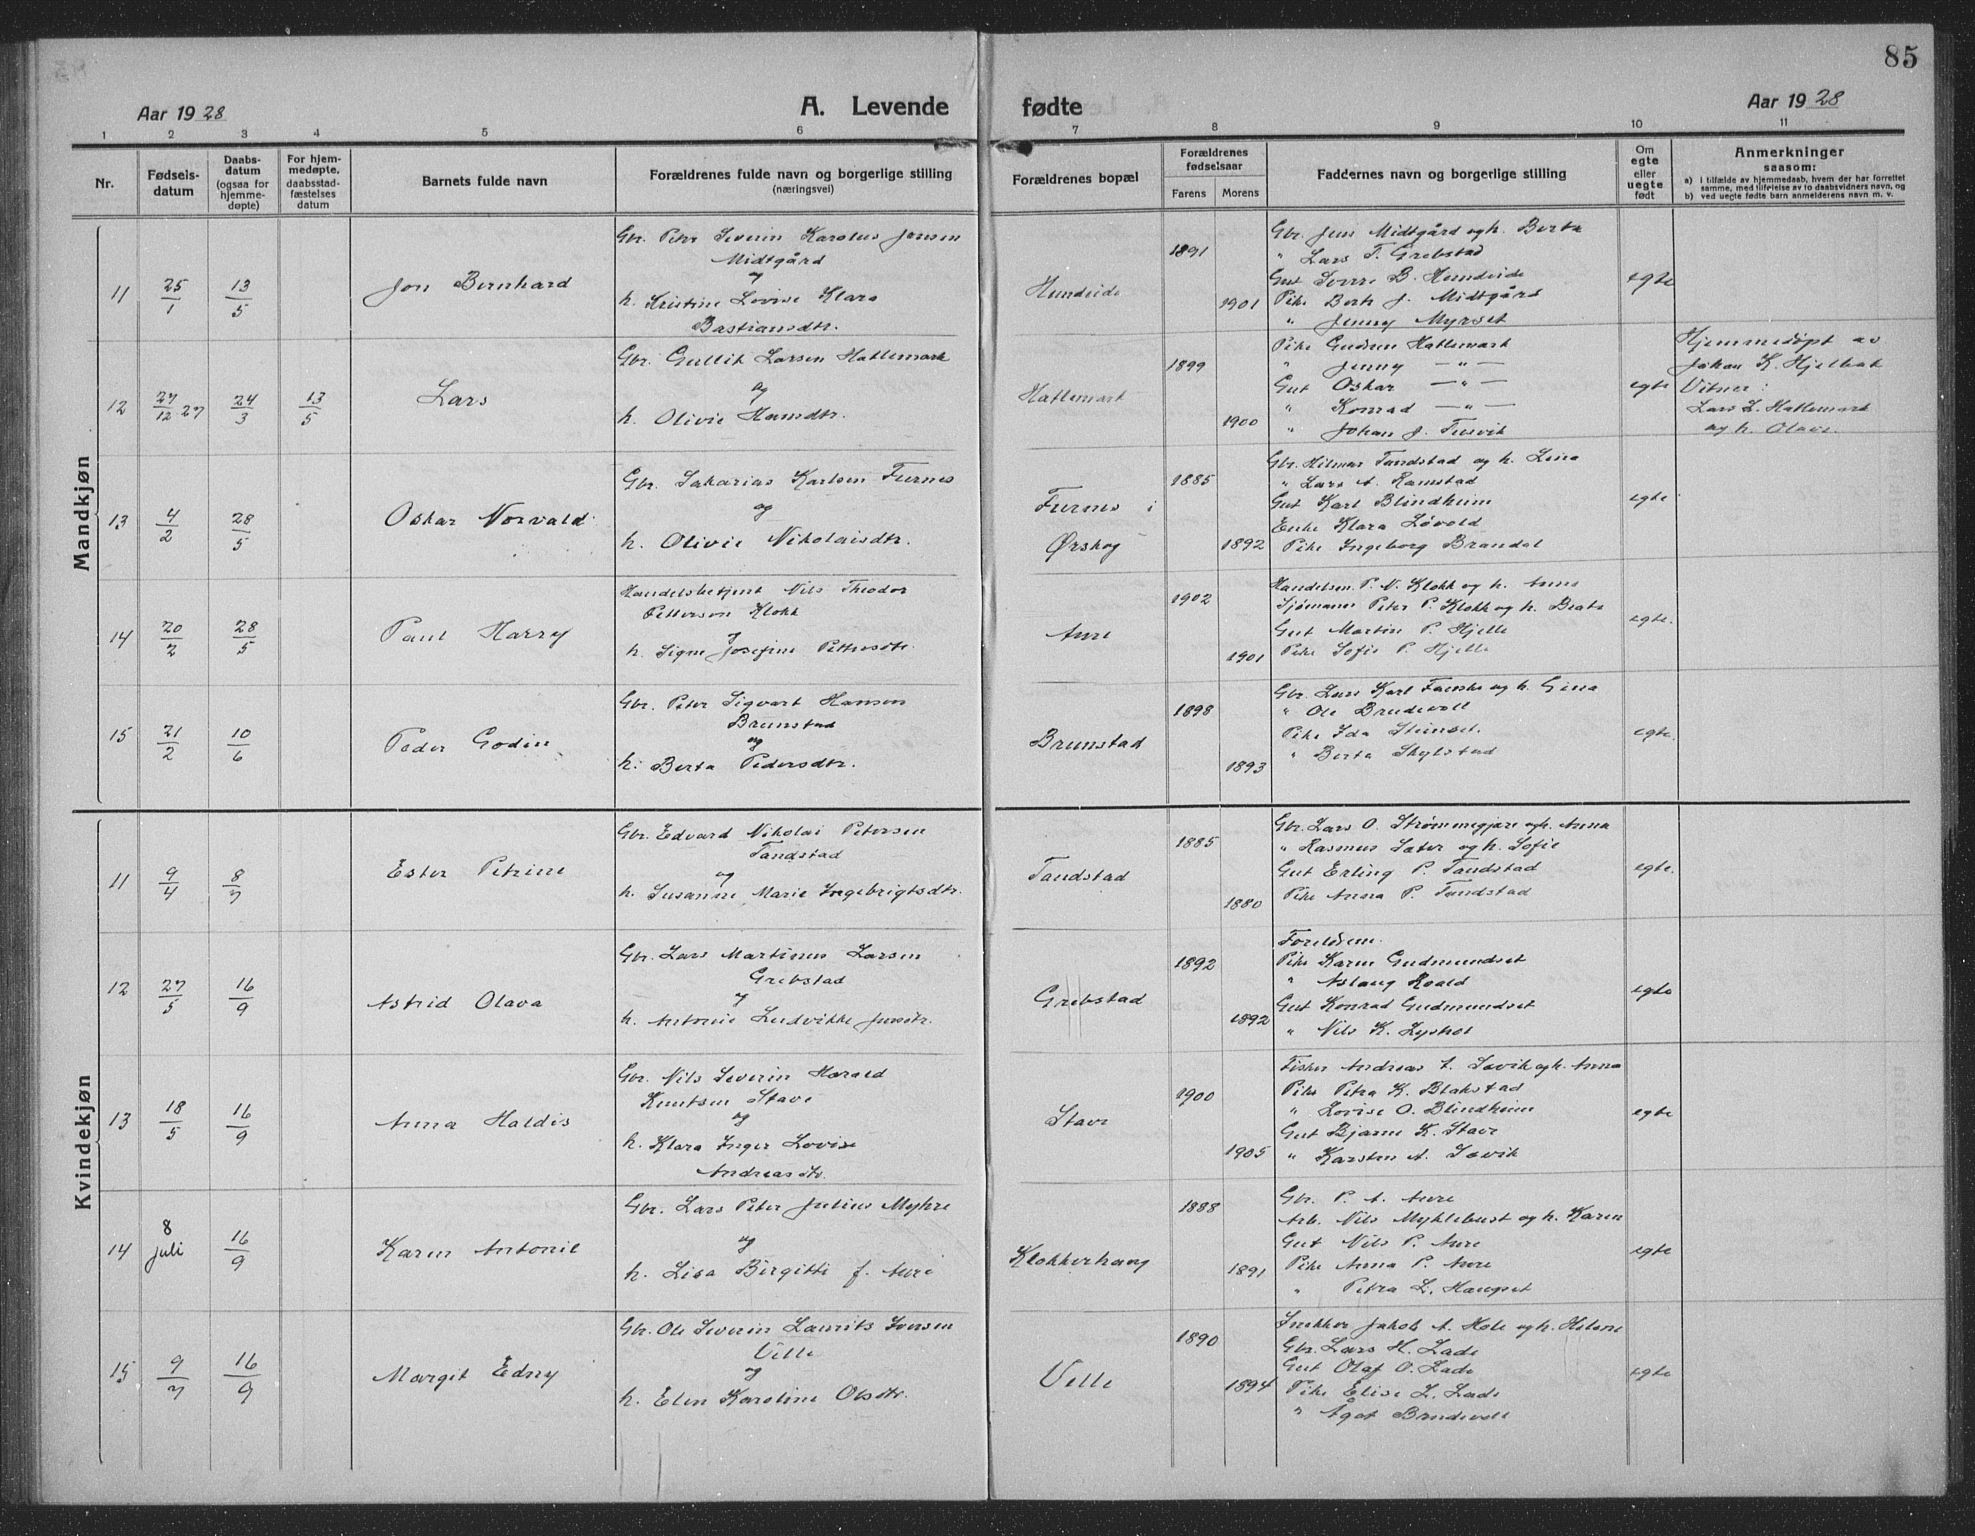 85
Aar 1928
A. Levende fødte
Aar 1928
1 2 3 4 5 6 7 8 9 10 11
Nr.
Fødselsdatum
Daabsdatum (ogsaa for hjemmedøpte)
For hjemmedøpte, daabsstadfæstelses datum
Barnets fulde navn
Forældrenes fulde navn og borgerlige stilling (næringsvei)
Forældrenes bopæl
Forældrenes fødselsaar
Farens Morens
Faddernes navn og borgerlige stilling
Om egte eller uegte født
Anmerkninger
saasom:
a) i tilfælde av hjemmedaab, hvem der har forrettet samme, med tilføielse av to daabsvidners navn, og
b) ved uegte fødte barn anmelderens navn m. v.
Mandkjøn
11 25/1 13/5
Jon Bernhard
Gbr. Peter Severin Karolus Jensen
Midtgård
og
h. Kristine Lovise Klara
Bastiansdtr.
Hundeide
1891
1901
Gbr. Jens Midtgård og h. Berta
" Lars T. Grebstad
Gut Sverre B. Hundeide
Pike Berte J. Midtgård
" Jenny Myrset
egte
12 27/12 27 24/3 13/5
Lars
Gbr. Gullik Larsen Hatlemark
og
h. Olivie Hansdtr.
Hatlemark
1899
1900
Pike Gudrun Hatlemark
" Jenny — " —
Gut Oskar — " —
" Konrad — " —
" Johan J. Tusvik
egte
Hjemmedøpt av
Johan K. Hjelbak
Vitner:
Lars L. Hatlemark
og h. Olave.
13 4/2 28/5
Oskar Norvald
Gbr. Sakarias Karlsen Furnes
og
h. Olivie Nikolaisdtr.
Furnes i
Ørskog
1885
1892
Gbr. Hilmar Tandstad og h. Lina
" Lars A. Ramstad
Gut Karl Blindheim
Enke Klara Løvold
Pike Ingeborg Brandal
egte
14 20/2 28/5
Paul Harry
Handelsbetjent Nils Theodor
Petterson Klokk
og
h. Signe Josefine Pettersdtr.
Aure
1902
1901
Handelsm. P. N. Klokk og h. Anna
Sjømann Peter P. Klokk og h. Beate
Gut Martin P. Hjelle
Pike Sofie P. Hjelle
egte.
15 21/2 10/6
Peder Godin
Gbr. Peter Sigvart Hansen
Brunstad
og
h. Berta Pedersdtr.
Brunstad
1898
1893
Gbr. Lars Karl Fauske og h. Gina
" Ole Brudevoll
Pike Ida Steinset.
" Berta Skylstad
egte.
Kvindekjøn
11 9/4 8/7
Ester Petrine
Gbr. Edvard Nikolai Petersen
Tandstad
og
h. Susanne Marie Ingebrigtsdtr.
Tandstad
1885
1880
Gbr. Lars O. Strømmegjære og h. Anna
" Rasmus Sæter og h. Sofie
Gut Erling P. Tandstad
Pike Anna P. Tandstad
egte.
12 27/5 16/9
Astrid Olava
Gbr. Lars Martinus Larsen
Grebstad
og
h. Antonie Ludvikke Jensdtr.
Grebstad
1892
1892
Foreldrene.
Pike Karen Gudmundset
" Aslaug Roald
Gut Konrad Gudmundset
" Nils K. Lyshol
egte
13 18/5 16/9
Anna Haldis
Gbr. Nils Severin Harald
Knutsen Stave
og
h. Klara Inger Lovise
Andreasdtr.
Stave
1900
1905
Fisker Andreas A. Søvik og h. Anna
Pike Petra K. Blakstad
" Lovise O. Blindheim
Gut Bjarne K. Stave
" Karsten A. Søvik
egte
14 8 juli 16/9
Karen Antonie
Gbr. Lars Peter Julius Myhre
og
h. Lisa Birgitte f. Aure
Klokkerhaug
1888
1891
Gbr. P. A. Aure
Arb. Nils Myklebust og h. Karen
Gut Nils P. Aure
Pike Anna P. Aure
" Petra L. Haugset
egte
15 9/7 16/9
Margit Edny
Gbr. Ole Severin Laurits Iversen
Velle
og
h. Elen Karoline Olsdtr.
Velle
1890
1894
Snekker Jakob A. Hole og h. Helene
Gbr. Lars H. Lade
Gut Olaf O. Lade
Pike Elise L. Lade
" Ågot Brudevoll
egte